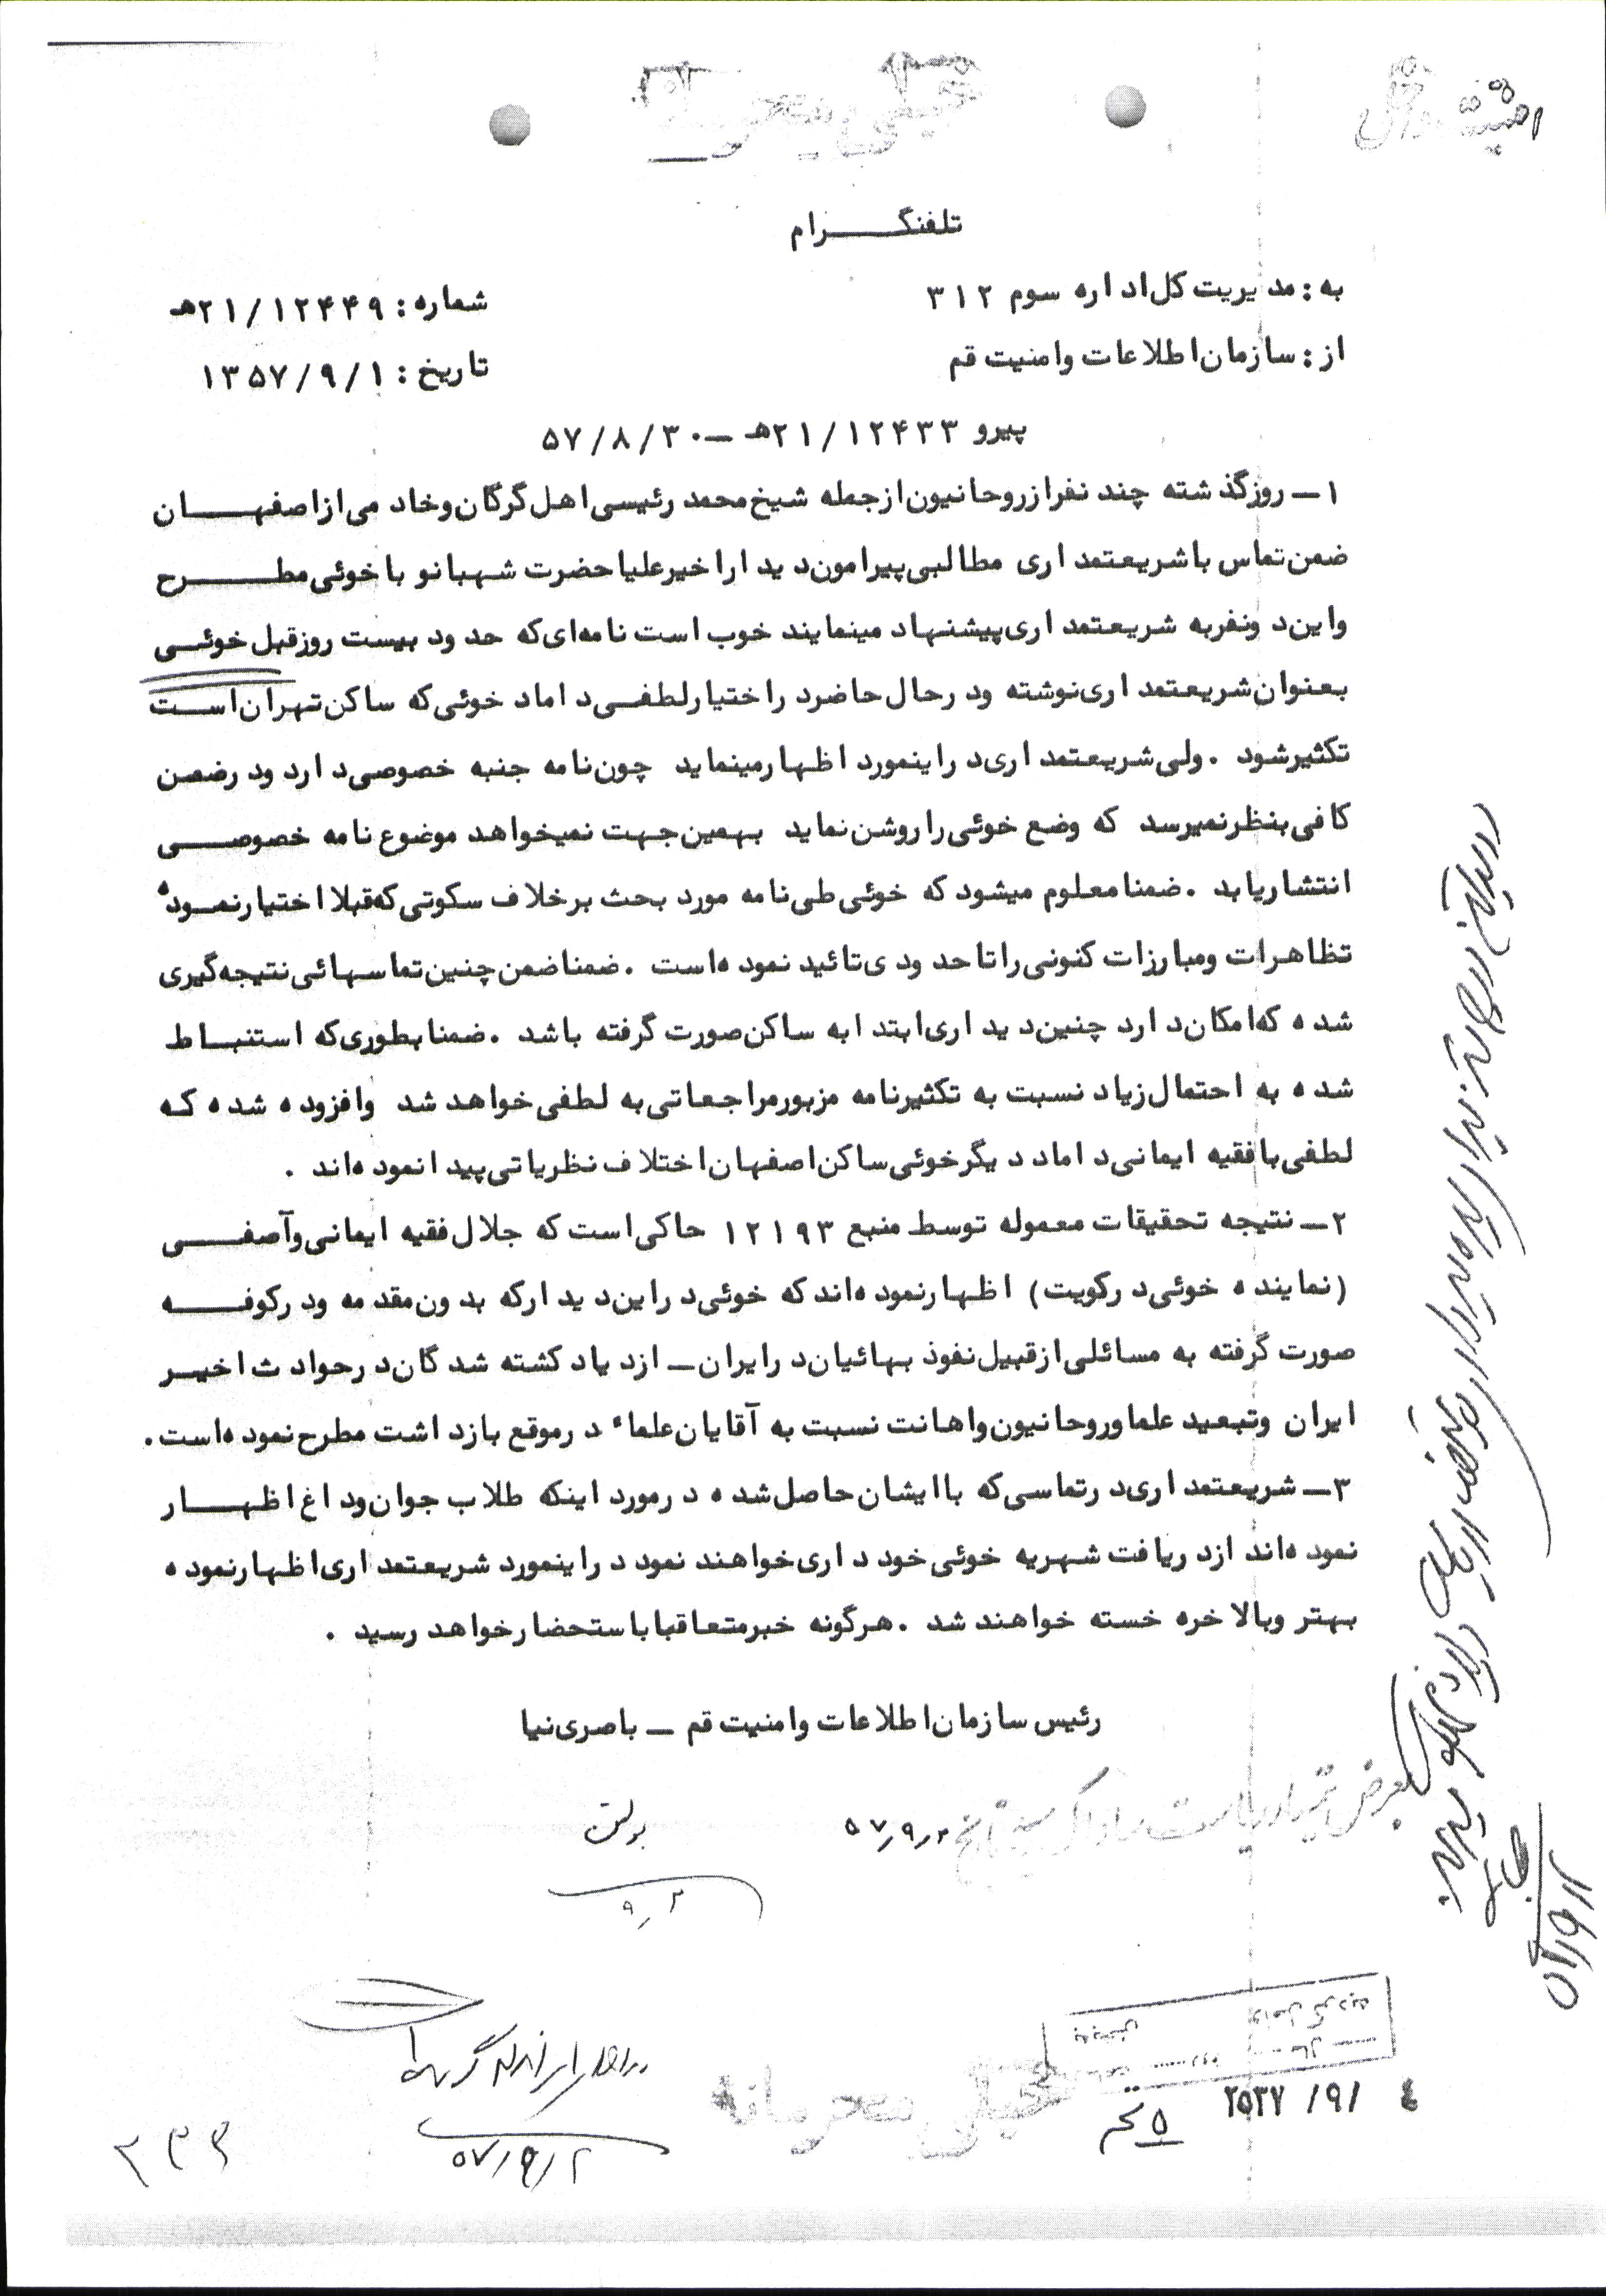 خیلی محرمانه
تلفنگرام
به: مدیریت کل اداره سوم ۳۱۲
شماره: ۲۱/۱۲۴۴۹ھ
از: سازمان اطلاعات و امنیت قم
تاریخ: ۱۳۵۷/۹/۱
پیرو ۲۱/۱۲۴۳۳ھ – ۵۷/۸/۳۰
۱– روز گذشته چند نفر از روحانیون از جمله شیخ محمد رئیسی اهل گرگان و خادمی از اصفهان
ضمن تماس با شریعتمداری مطالبی پیرامون دیدار اخیر علیا حضرت شهبانو با خوئی مطرح
و این دو نفر به شریعتمداری پیشنهاد مینمایند خوب است نامه‌ای که حدود بیست روز قبل خوئی
بعنوان شریعتمداری نوشته و در حال حاضر در اختیار لطفی داماد خوئی که ساکن تهران است
تکثیر شود. ولی شریعتمداری در اینمورد اظهار مینماید چون نامه جنبه خصوصی دارد و در ضمن
کافی بنظر نمیرسد که وضع خوئی را روشن نماید بهمین جهت نمیخواهد موضوع نامه خصوصی
انتشار یابد. ضمنا معلوم میشود که خوئی طی نامه مورد بحث برخلاف سکوتی که قبلا اختیار نموده
تظاهرات و مبارزات کنونی را تا حدودی تائید نموده است. ضمنا ضمن چنین تماسهائی نتیجه گیری
شده که امکان دارد چنین دیداری ابتدا به ساکن صورت گرفته باشد. ضمنا بطوری که استنباط
شده به احتمال زیاد نسبت به تکثیر نامه مزبور مراجعاتی به لطفی خواهد شد و افزوده شده که
لطفی با فقیه ایمانی داماد دیگر خوئی ساکن اصفهان اختلاف نظریاتی پیدا نموده اند.
۲– نتیجه تحقیقات معموله توسط منبع ۱۲۱۹۳ حاکی است که جلال فقیه ایمانی و آصفی
(نماینده خوئی در کویت) اظهار نموده اند که خوئی در این دیدار که بدون مقدمه و در کوفه
صورت گرفته به مسائلی از قبیل نفوذ بهائیان در ایران – ازدیاد کشته شدگان در حوادث اخیر
ایران و تبعید علما و روحانیون و اهانت نسبت به آقایان علماء در موقع بازداشت مطرح نموده است.
۳– شریعتمداری در تماسی که با ایشان حاصل شده در مورد اینکه طلاب جوان و داغ اظهار
نموده اند از دریافت شهریه خوئی خودداری خواهند نمود در اینمورد شریعتمداری اظهار نموده
بهتر و بالاخره خسته خواهند شد. هرگونه خبر متعاقبا باستحضار خواهد رسید.
رئیس سازمان اطلاعات و امنیت قم – باصری نیا
۵۷/۹/۲
بولتن
۹/۲
۲۵۳۷/۹/۴
خیلی محرمانه
۵۷/۹/۲
۲۳۳